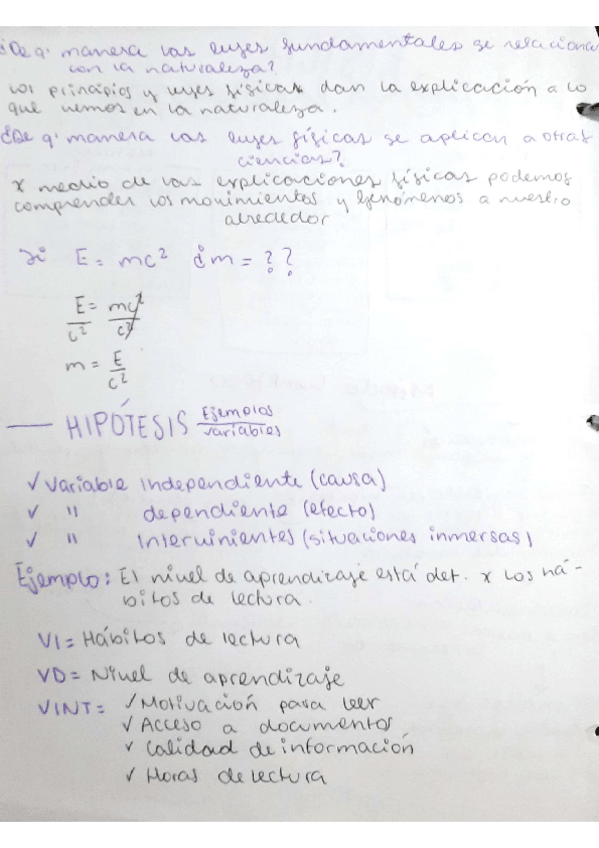 ¿De q' manera las leyes fundamentales se relaciona
con la naturaleza?
Los principios y leyes físicas dan la explicación a lo
que vemos en la naturaleza.
¿De q' manera las leyes físicas se aplican a otras
ciencias?
x medio de las explicaciones físicas podemos
comprender los movimientos y fenómenos a nuestro
alrededor
Si E = mc² ¿m = ??
E = mc²
c² c²
m = E
c²
— HIPÓTESIS Ejemplos
variables
✓ Variable independiente (causa)
✓ " dependiente (efecto)
✓ " Intervinientes (situaciones inmersas)
Ejemplo: El nivel de aprendizaje está det. x los há-
bitos de lectura.
VI = Hábitos de lectura
VD = Nivel de aprendizaje
VINT = ✓ Motivación para leer
✓ Acceso a documentos
✓ Calidad de información
✓ Horas de lectura